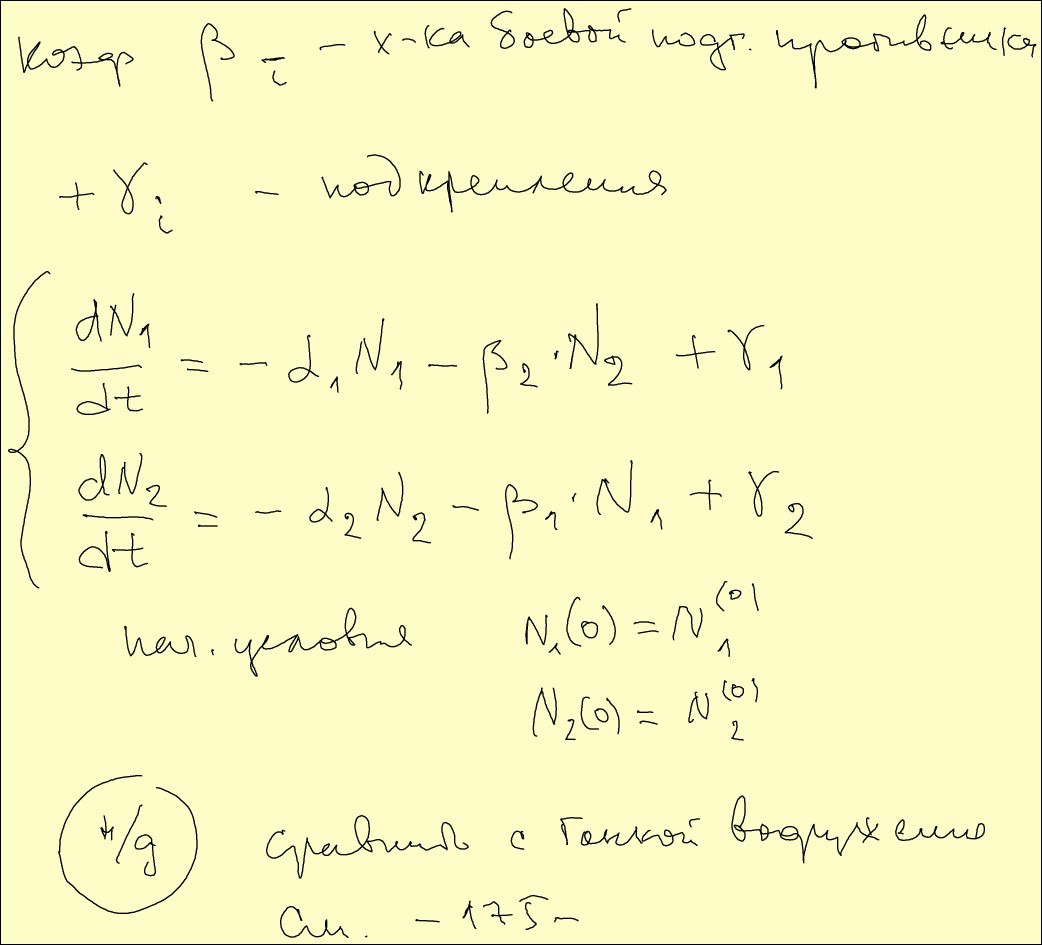 коэф β_i – х-ка боевой подг. противника
+ γ_i – подкрепления
dN_1/dt = – α_1 N_1 – β_2 · N_2 + γ_1
dN_2/dt = – α_2 N_2 – β_1 · N_1 + γ_2
нач. условие N_1(0) = N_1^(0)
N_2(0) = N_2^(0)
н/д сравнить с Гонкой вооружение
См. – 175 –